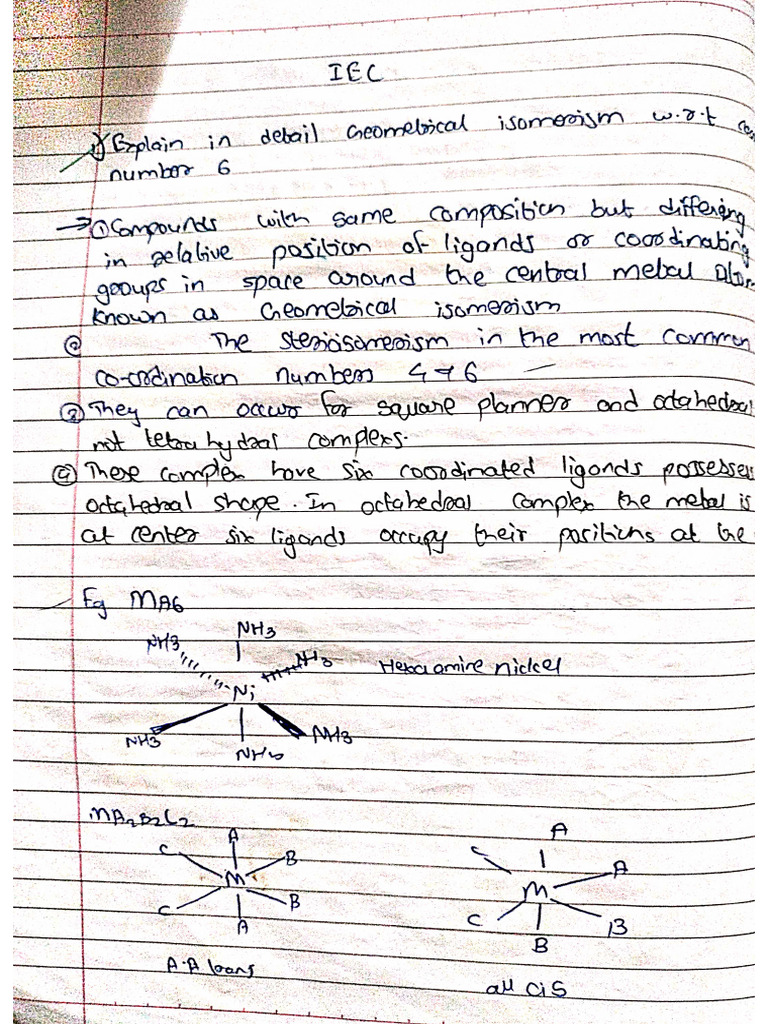 IEC
1) Explain in detail Geometrical isomerism w.r.t
number 6
→ ① Compounds with same composition but differing
in relative position of ligands or coordinating
groups in space around the central metal
known as Geometrical isomerism
② The sterioisomerism in the most common
co-ordination numbers 4 & 6
③ They can occur for square planner and octahedral
not tetrahydral complexs.
④ These complex have six coordinated ligands possesses
octahedral shape. In octahedral complex the metal is
at center six ligands occupy their positions at the
Eg MA6
NH3 NH3
NH3 Hexaamine nickel
Ni
NH3 NH3 NH3
MA2B2C2
A A
C B C A
M M
C B C B
A B
A-A trans all cis